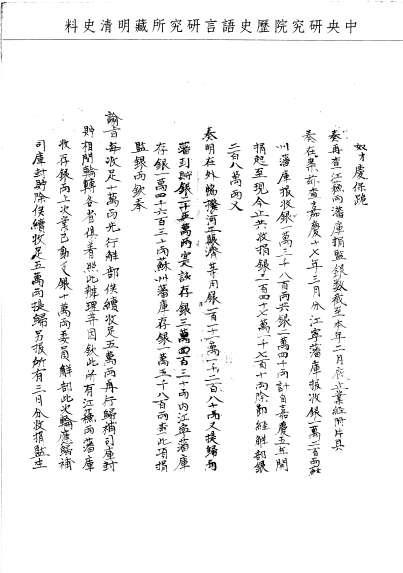 中央研究院歷史語言研究所藏明清史料
奴才慶保跪
奏再查江蘇兩藩庫捐監銀數截至本年二月底止業經附片具
奏在案茲查嘉慶十七年三月分江寧藩庫报收銀一萬二百兩蘇
州藩庫报收銀一萬二千八百兩共銀二萬四十兩計自嘉慶五年開
捐起至現今止共收捐銀二百四十七萬一千七百十兩除動經解部銀
二百八萬兩又
奏明在外協撥河工賑濟等用銀一百二十一萬一千二百八十兩又提歸司
藩封貯銀二十五萬兩實該存銀三萬四百三十兩內江寧藩庫
存銀一萬四千六百三十兩蘇州藩庫存銀一萬五千八百兩查此項捐
監銀兩欽奉
諭旨每收足十萬兩先行解部俟續收足五萬兩再行歸補司庫封
貯相間輪轉各省俱着照此辦理等因欽此所有江蘇兩藩庫
收存銀兩上次業已動支銀十萬兩委員解部此次輪應歸補
司庫封貯除俟續收足五萬兩提歸另报所有三月分收捐監生